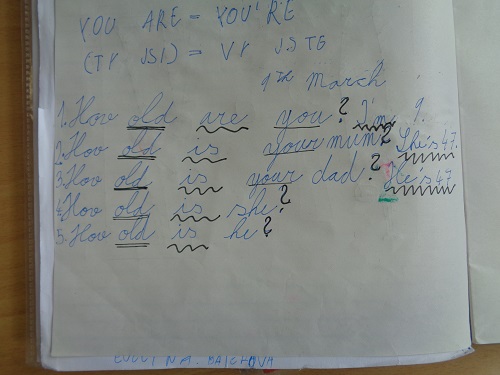 YOU ARE = YOU'RE
(TY JSI) = VY JSTE
9TH March
1. Hov old are you? I'm 9.
2. Hov old is your mum? She's 47.
3. Hov old is your dad? He's 47.
4. Hov old is she?
5. Hov old is he?